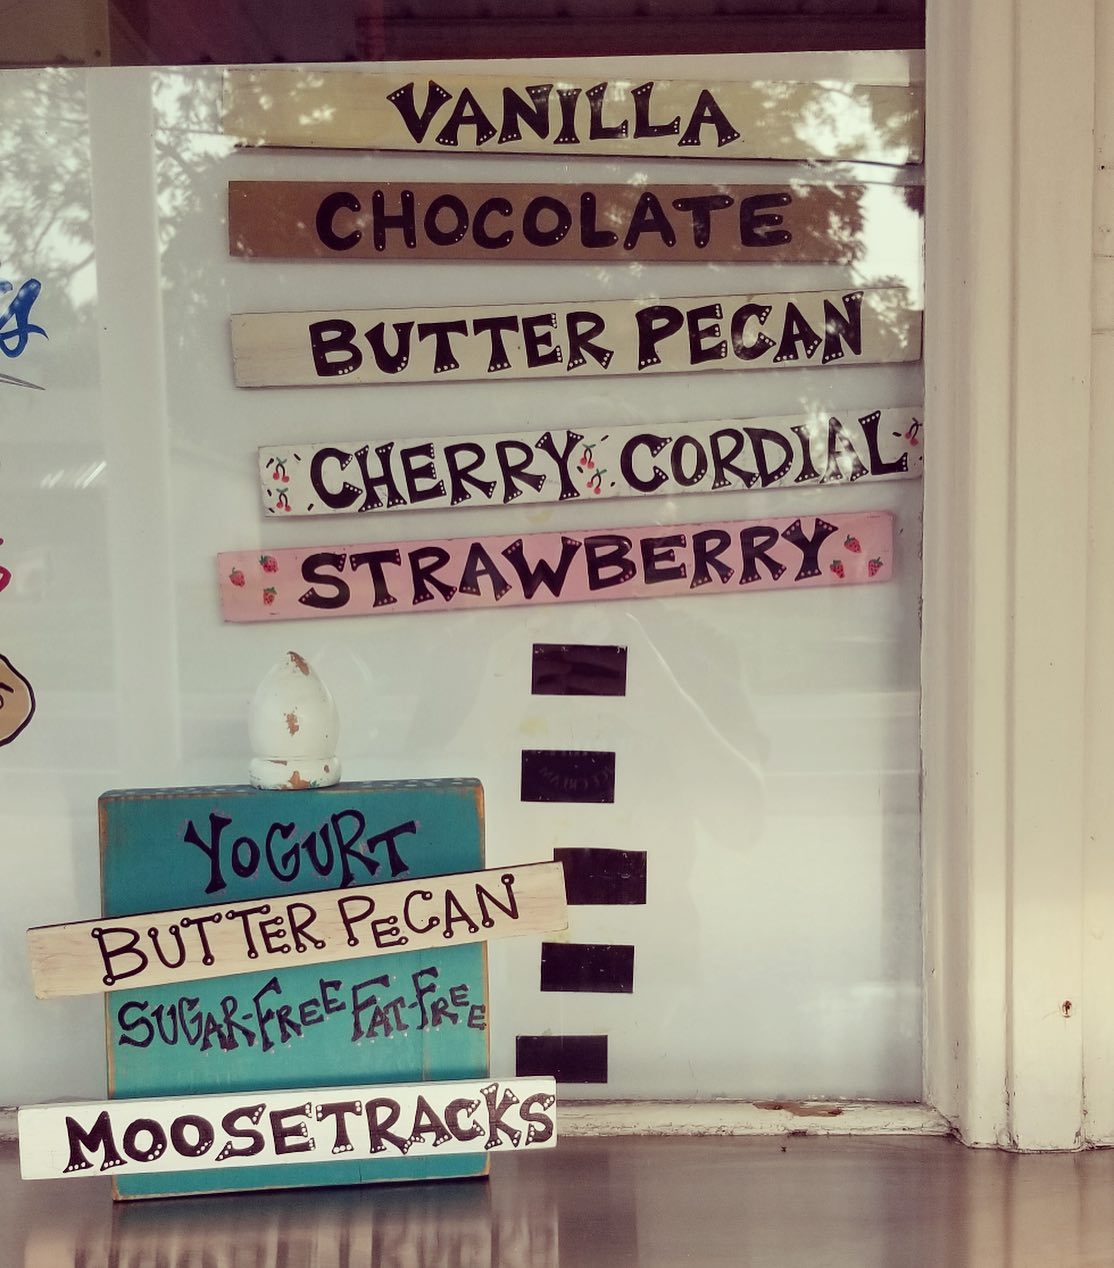 VANILLA
CHOCOLATE
BUTTER PECAN
CHERRY CORDIAL
STRAWBERRY
YOGURT
BUTTER PECAN
SUGAR-FREE FAT-FREE
MOOSETRACKS